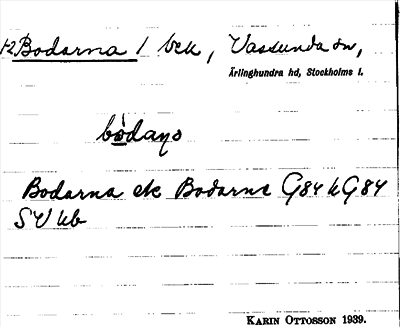 12 Bodarna 1 bek, Vassunda sn,
Ärlinghundra hd, Stockholms l.
bòdaṇa
Bodarna ek Bodarne G84 k G84
SV kb
KARIN OTTOSSON 1939.